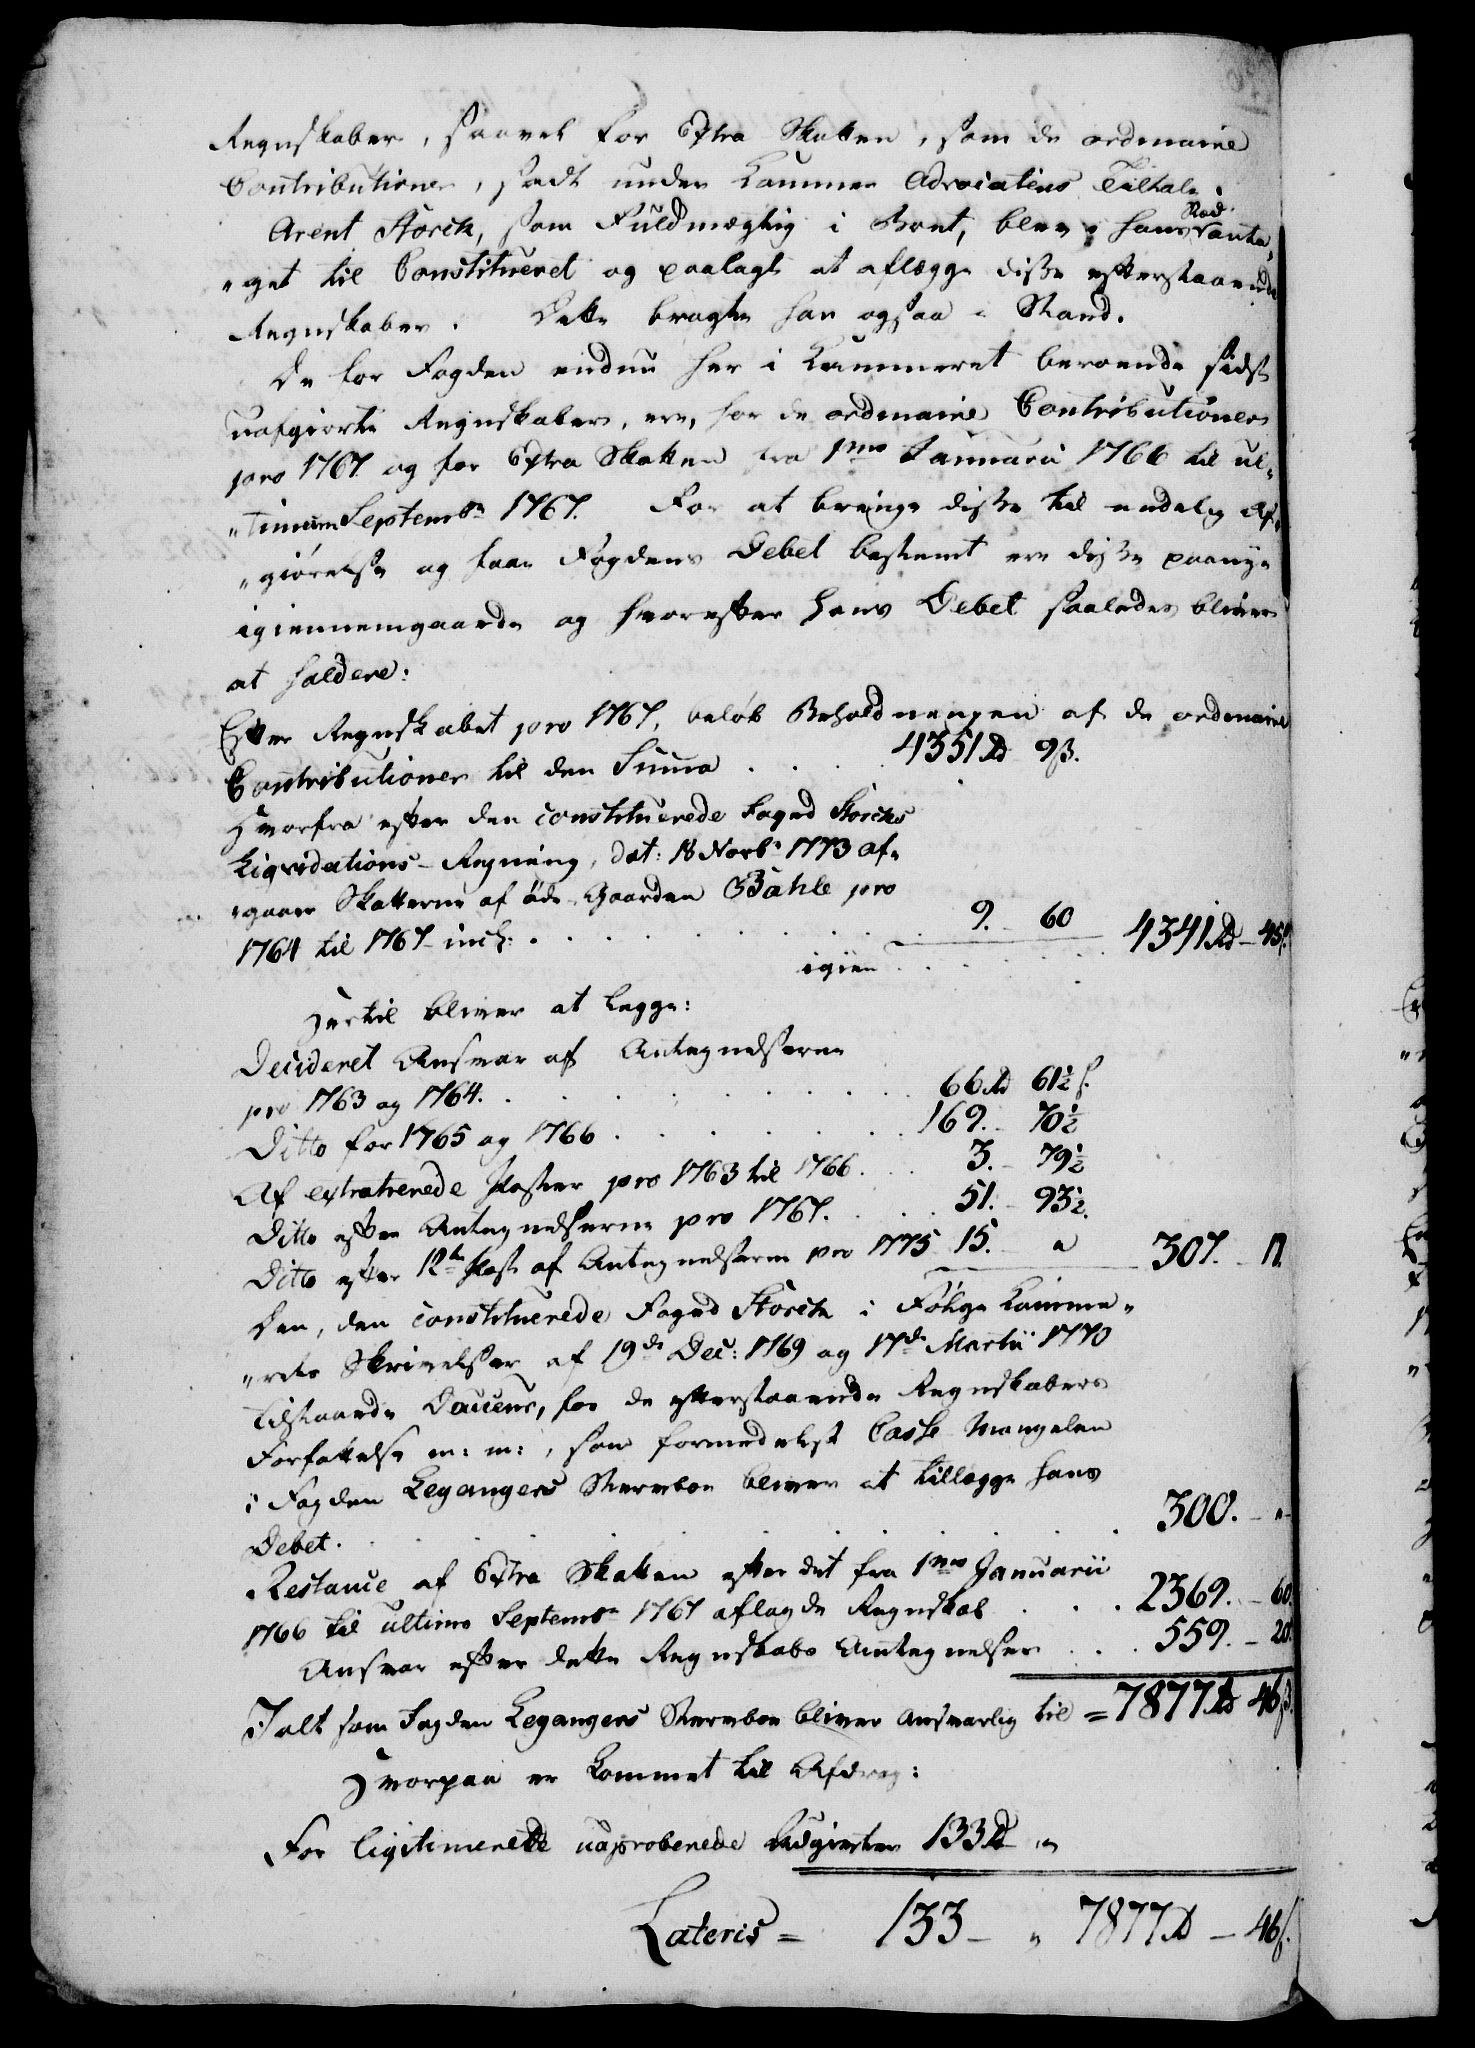 Regnskaber, saavel for Extra Skatten, som de ordinaire
Contributioner, sadt under Cammer Advocatens Tiltale.
Arent Storck, som Fuldmægtig i Boet, blev i hans Sted anta„
„get til Constitueret og paalagt at aflægge disse efterstaaende
Regnskaber. Dette bragte han ogsaa i Stand.
De for Fogden endnu her i Cammeret beroende sidst
uafgiorte Regnskaber, ere, for de ordinaire Contributioner
pro 1767 og for Extra Skatten fra 1mo Januarii 1766 til ul„
„timum Septembr 1767. For at bringe disse til endelig Af„
„giørelse og faae Fogdens Debet bestemt ere disse paanye
igiennemgaaede og hvorefter hans Debet saaledes bliver
at holdere:
Efter Regnskabet pro 1767, beløb Beholdningen af de ordinaire
Contributioner til den Suma . . . . 4351 Rd 9 ß.
Hvorfra efter den constituerede Foged Storcks
Liqvidations-Regning, dat: 18 Novbr 1773 af„
„gaaer Skatterne af øde-Gaarden Bahle pro
1764 til 1767 incl: . . . . . . . 9. - 60
igien . . . . . 4341 Rd - 45 ß.
Hertil bliver at legge:
Decideret Ansvar af Antegnelserne
pro 1763 og 1764. . . . . . . . 66 Rd 61½ ß.
Ditto for 1765 og 1766 . . . . . . 169. - 70½
Af extraherede Poster pro 1763 til 1766 . . . 3. - 79½
Ditto efter Antegnelserne pro 1767. . . . 51. - 93½.
Ditto efter 12te Post af Antegnelserne pro 1775 15. - „ 307. - 17.
Den, den constituerede Foged Storck i Følge Camme„
„rets Skrivelser af 19de Dec: 1769 og 17de Martii 1770
tilstaaede Douceur, for de efterstaaende Regnskabers
Forfattelse m: m:, som formedelst Casse Mangelen
i Fogden Legangers Stervboe bliver at tillægge hans
Debet. . . . . . . . . . 300. - „
Restance af Extra Skatten efter det fra 1mo Januarii
1766 til ultimo Septembr 1767 aflagde Regnskab . . . 2369. - 60.
Ansvar efter dette Regnskabs Antegnelser . . . 559. - 20.
I alt som Fogden Legangers Stervboe bliver ansvarlig til = 7877 Rd 46 ß.
Hvorpaa er kommet til Afdrag:
For legitimerede uaproberede Udgivter 133 Rd „
Lateris = 133 - „ 7877 Rd - 46 ß.